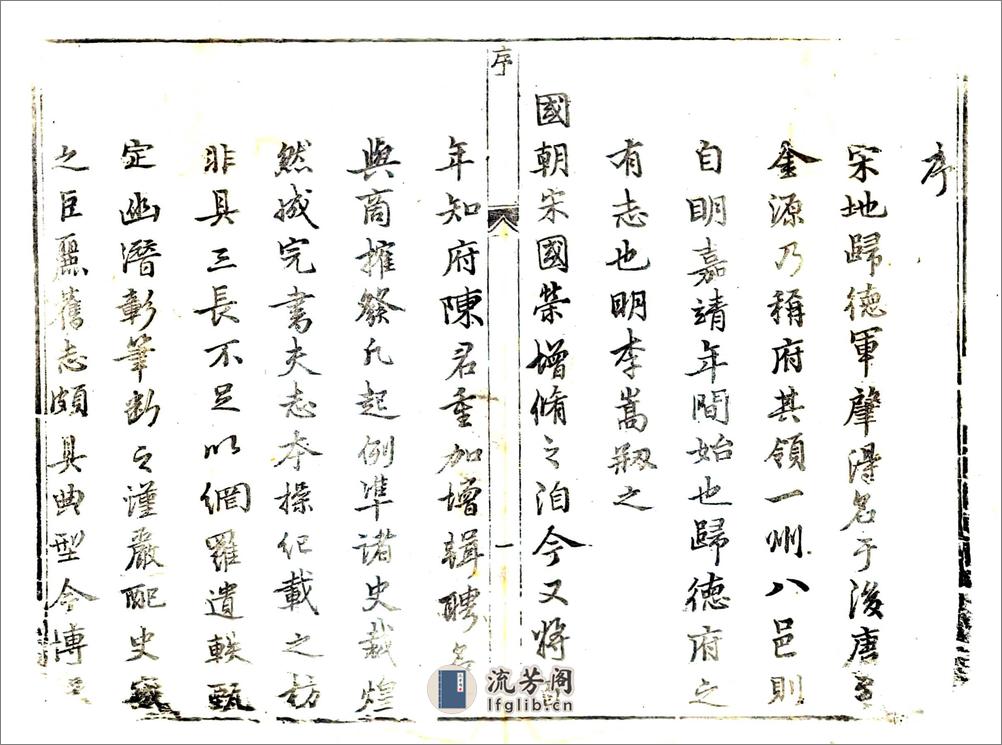 序
宋地歸德軍肇得名于後唐至
金源乃稱府其領一州八邑則
自明嘉靖年間始也歸德府之
有志也明李嵩剏之
國朝宋國榮增脩之洎今又將
序
一
年知府陳君重加增輯聘名
與商搉發凡起例準諸史裁煌
然成完書夫志本操紀載之
非具三長不足以網羅遺軼甄
定幽潛彰筆削之謹嚴配史
之臣舊志頗具典型今博
流芳阁
lfglib.cn